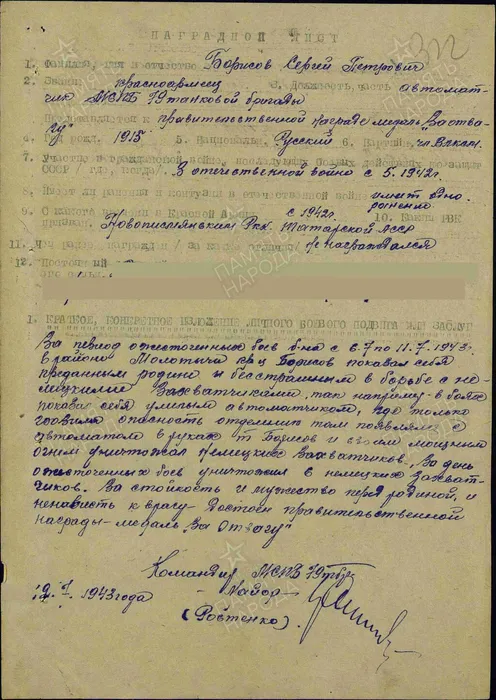 НАГРАДНОЙ ЛИСТ
1. Фамилия, имя и отчество Борисов Сергей Петрович
2. Звание красноармеец 3. Должность, часть автомат-
чик МСПБ 79 танковой бригады
Представляется к правительственной награде медаль "За отва-
гу"
4. Год рожд. 1915 5. Национальн. Русский 6. Партийн. чл. ВЛКСМ
7. Участие в гражданской войне, последующих боевых действиях по защите
СССР /где, когда/ В отечественной войне с 5.1942г.
8. Имеет ли ранения и контузии в отечественной войне имеет одно
ранение
9. С какого времени в Красной Армии с 1942г. 10. Каким РВК
призван Татарской АССР
11. Чем ранее награжден /за какие отличия/ Не награждался
12. Постоянный
1. КРАТКОЕ, КОНКРЕТНОЕ ИЗЛОЖЕНИЕ ЛИЧНОГО БОЕВОГО ПОДВИГА ИЛИ ЗАСЛУГ
За период ожесточенных боев б-на с 6.7 по 11.7.1943г.
в районе Молотычи кр-ц Борисов показал себя
преданным родине и бесстрашным в борьбе с не-
мецкими Захватчиками, так например в боях
показал себя умелым автоматчиком, где только
грозила опасность отделению там появлялся с
автоматом в руках т. Борисов и своим мощным
огнем уничтожал немецких Захватчиков. За день
ожесточенных боев уничтожил 8 немецких Захват-
чиков. За стойкость и мужество перед родиной, и
ненависть к врагу - Достоин правительственной
награды - медаль "За Отвагу"
Командир МСПБ 79 тбр
Майор
1943 года
(Ростенко)
ПАМЯТЬ НАРОДА